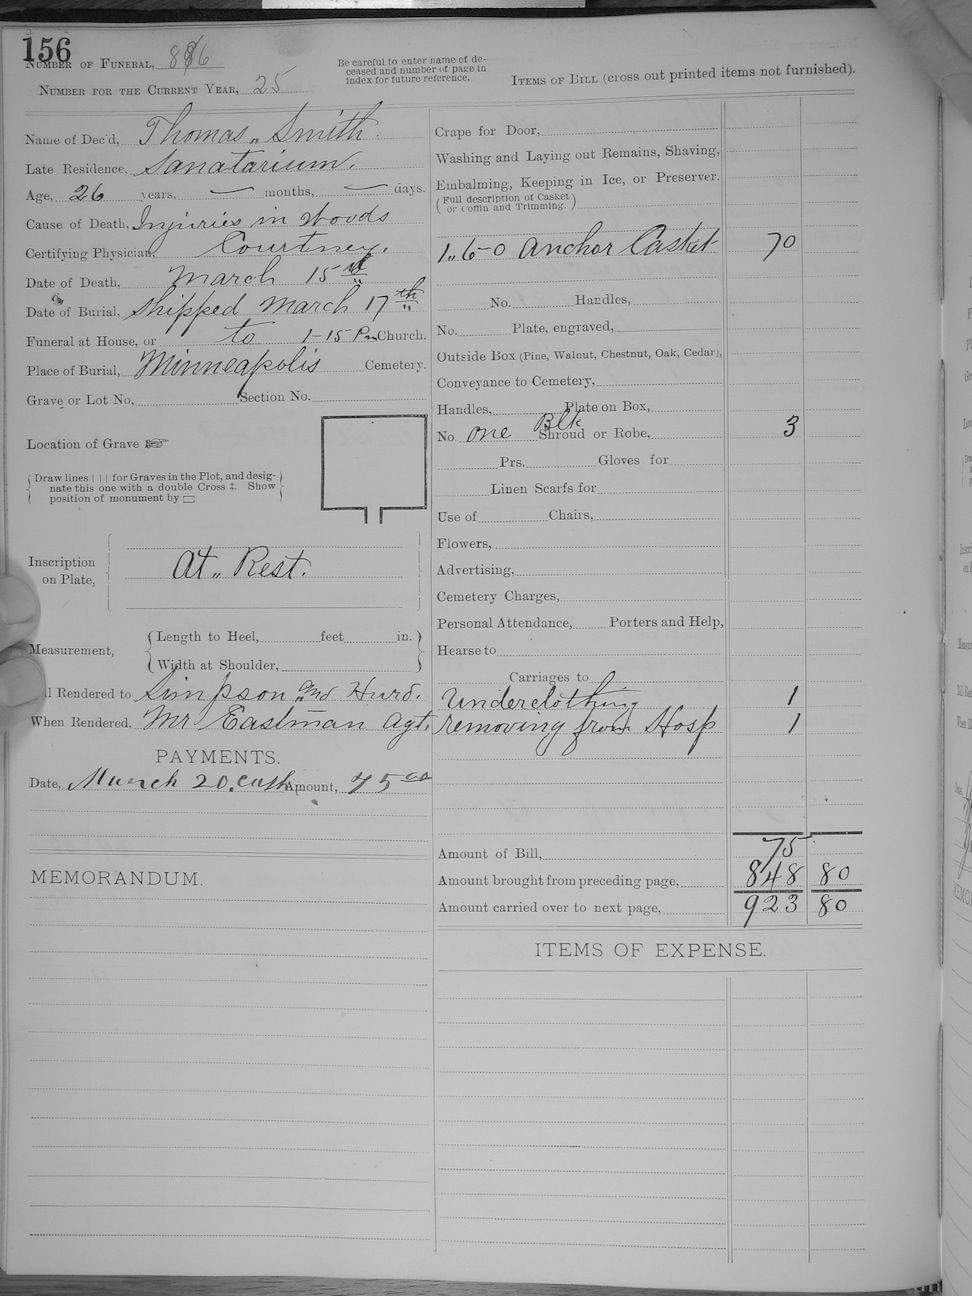 156
Number of Funeral, 6
Number for the Current Year, 25
Be careful to enter name of de-
ceased and number of page in
index for future reference.
Items of Bill (cross out printed items not furnished).
Name of Dec'd, Thomas,, Smith.
Late Residence, Sanatarium.
Age, 26 years, — months, — days.
Cause of Death, Injuries in woods
Certifying Physician, Courtney.
Date of Death, March 15
Date of Burial, Shipped March 17th
Funeral at House, or to 1-15 Pm Church.
Place of Burial, Minneapolis Cemetery.
Grave or Lot No, Section No.
Location of Grave ☞
Draw lines | | | for Graves in the Plot, and desig-
nate this one with a double Cross ‡. Show
position of monument by ▭
Inscription
on Plate,
At,, Rest.
Measurement,
Length to Heel, feet in.
Width at Shoulder,
l Rendered to Simpson and Hurd.
When Rendered, Mr Eastman Agt.
PAYMENTS.
Date, March 20, Cash Amount, 75 00
MEMORANDUM.
Crape for Door,
Washing and Laying out Remains, Shaving,
Embalming, Keeping in Ice, or Preserver.
(Full description of Casket
or Coffin and Trimming.)
1,, 6-0 Anchor Casket 70
No. Handles,
No. Plate, engraved,
Outside Box (Pine, Walnut, Chestnut, Oak, Cedar),
Conveyance to Cemetery,
Handles, Plate on Box,
No. one Blk Shroud or Robe, 3
Prs. Gloves for
Linen Scarfs for
Use of Chairs,
Flowers,
Advertising,
Cemetery Charges,
Personal Attendance, Porters and Help,
Hearse to
Carriages to
Underclothing 1
removing from Hosp 1
Amount of Bill, 75
Amount brought from preceding page, 848 80
Amount carried over to next page, 923 80
ITEMS OF EXPENSE.